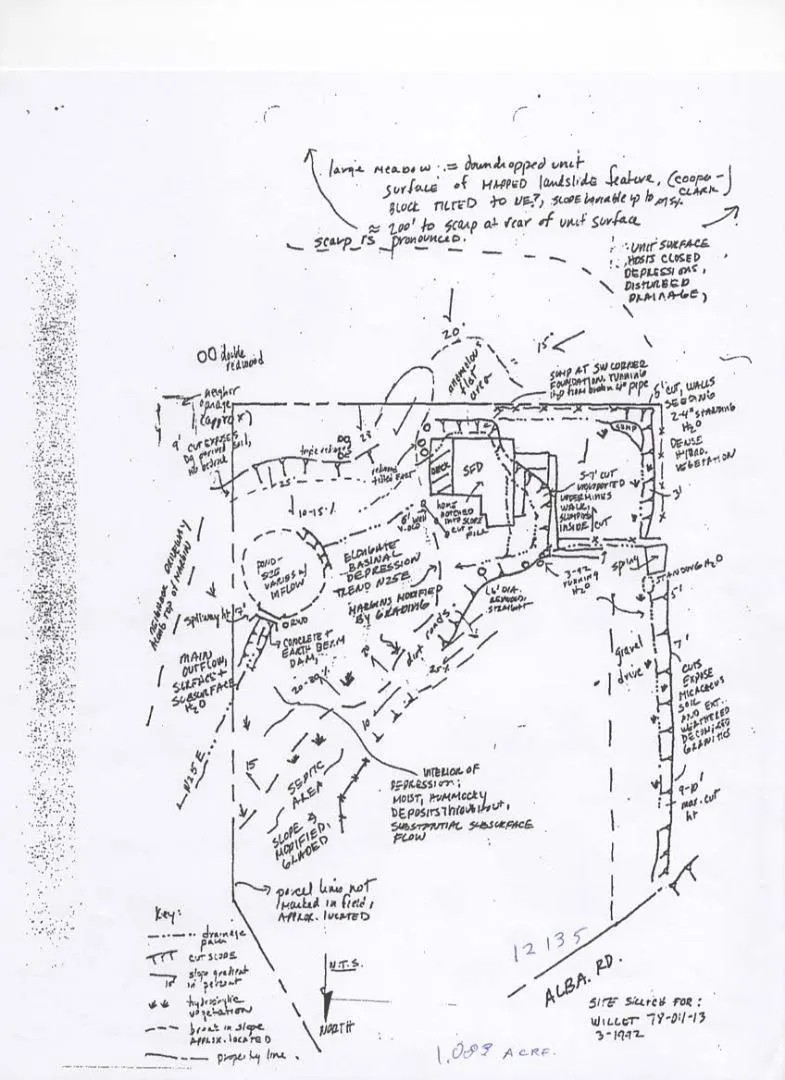 large meadow := downdropped unit
surface of MAPPED landslide feature, (COOPER-
CLARK)
BLOCK TILTED TO NE?, SLOPE variable up to
≈ 200' to scarp at rear of unit surface
scarp is pronounced.
UNIT SURFACE
HOSTS CLOSED
DEPRESSIONS,
DISTURBED
DRAINAGE,
20
15
double
redwood
anomalous
flat
area
SUMP AT SW CORNER
FOUNDATION, RUNNING
H2O from broken 4" pipe
5' CUT, WALLS
SEEDING
2-4" STANDING
H2O
DENSE
HYDRO.
VEGETATION
SUMP
3'
neighbor
garage
(approx)
4' CUT EXPOSES
Dg derived soil,
no bedrock
triple redwood
28
25
redwood
tilted East
DECK
SFD
5-7' CUT
UNSUPPORTED
UNDERMINES
WALK,
SLUMPING
INSIDE CUT
10-15%
6' well
HOME
NOTCHED
INTO SLOPE
CUT + FILL
POND-
SIZE
VARIES w/
INFLOW
ELONGATE
BASINAL
DEPRESSION
TREND N25E
MARGINS MODIFIED
BY GRADING
NEIGHBOR DRIVEWAY
ALONG TOP OF MARGIN
spillway ht
RWD
CONCRETE +
EARTH BERM
DAM,
MAIN
OUTFLOW,
SURFACE +
SUBSURFACE
H2O
N25E
6' DIA.
REDWOOD,
STRAIGHT
RUNNING
H2O
spring
STANDING H2O
5'
7'
gravel
drive
CUTS
EXPOSE
MICACEOUS
SOIL
AND EXT.
WEATHERED
DECOMPOSED
GRANITICS
9-10'
max. cut
ht
dirt roads
20
25%
20-30%
10
15
SEPTIC
AREA
SLOPE
MODIFIED,
GRADED
INTERIOR OF
DEPRESSION:
MOIST, HUMMOCKY
DEPOSITS THROUGHOUT,
SUBSTANTIAL SUBSURFACE
FLOW
parcel lines not
marked in field,
APPROX. LOCATED
Key:
drainage
path
CUT SLOPE
slope gradient
15 in percent
hydrophytic
vegetation
break in slope
APPROX. LOCATED
property line.
N.T.S.
NORTH
12135
ALBA. RD.
SITE SKETCH FOR:
WILLET 78-011-13
3-1992
1.088 ACRE.